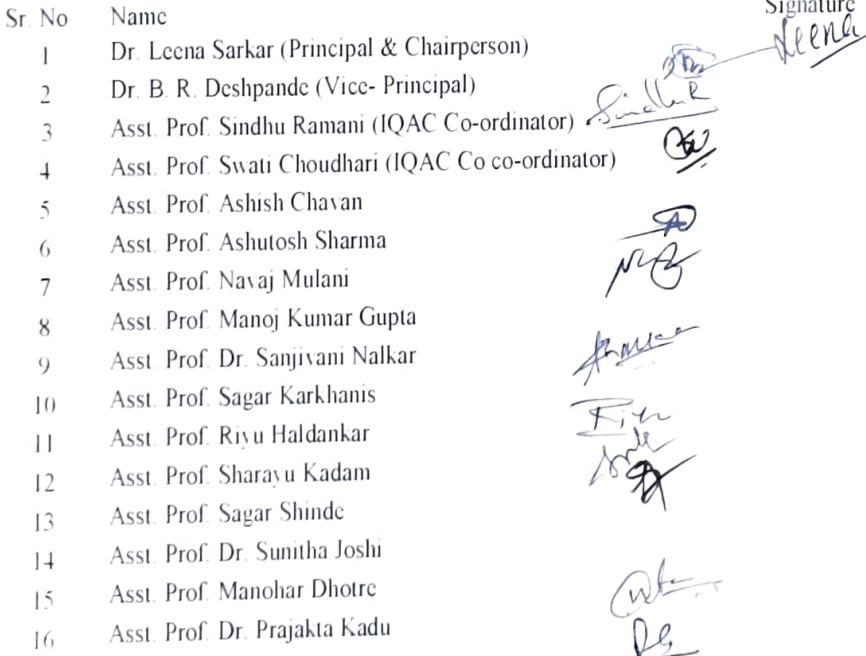 Sr. No Name Signature
1 Dr. Leena Sarkar (Principal & Chairperson) Leena
2 Dr. B. R. Deshpande (Vice- Principal)
3 Asst. Prof. Sindhu Ramani (IQAC Co-ordinator) SindhuR
4 Asst. Prof. Swati Choudhari (IQAC Co co-ordinator)
5 Asst. Prof. Ashish Chavan
6 Asst. Prof. Ashutosh Sharma
7 Asst. Prof. Navaj Mulani
8 Asst. Prof. Manoj Kumar Gupta
9 Asst. Prof. Dr. Sanjivani Nalkar
10 Asst. Prof. Sagar Karkhanis
11 Asst. Prof. Riyu Haldankar
12 Asst. Prof. Sharayu Kadam
13 Asst. Prof. Sagar Shinde
14 Asst. Prof. Dr. Sunitha Joshi
15 Asst. Prof. Manohar Dhotre
16 Asst. Prof. Dr. Prajakta Kadu